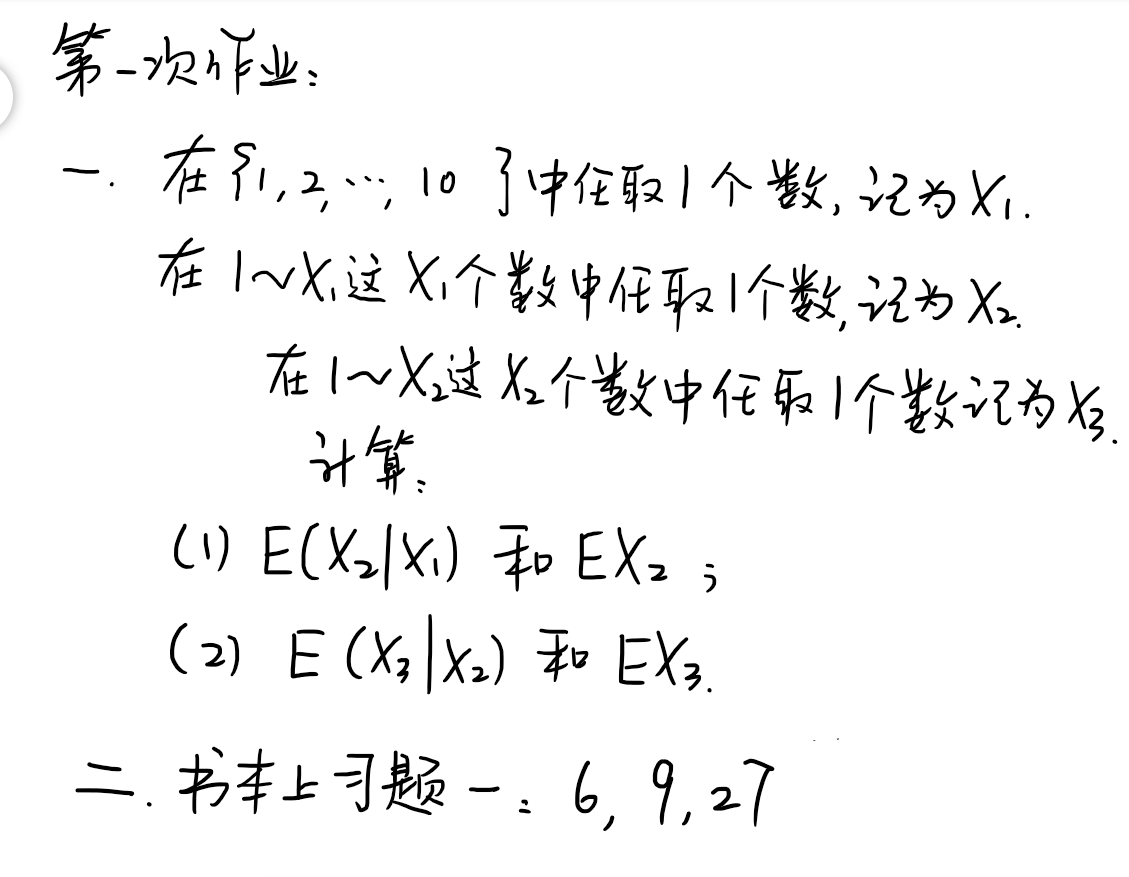 第一次作业:
一. 在{1,2,…,10}中任取1个数,记为X₁.
在1~X₁这X₁个数中任取1个数,记为X₂.
在1~X₂这X₂个数中任取1个数记为X₃.
计算:
(1) E(X₂|X₁) 和 EX₂;
(2) E(X₃|X₂) 和 EX₃.
二. 书本上习题一: 6, 9, 27